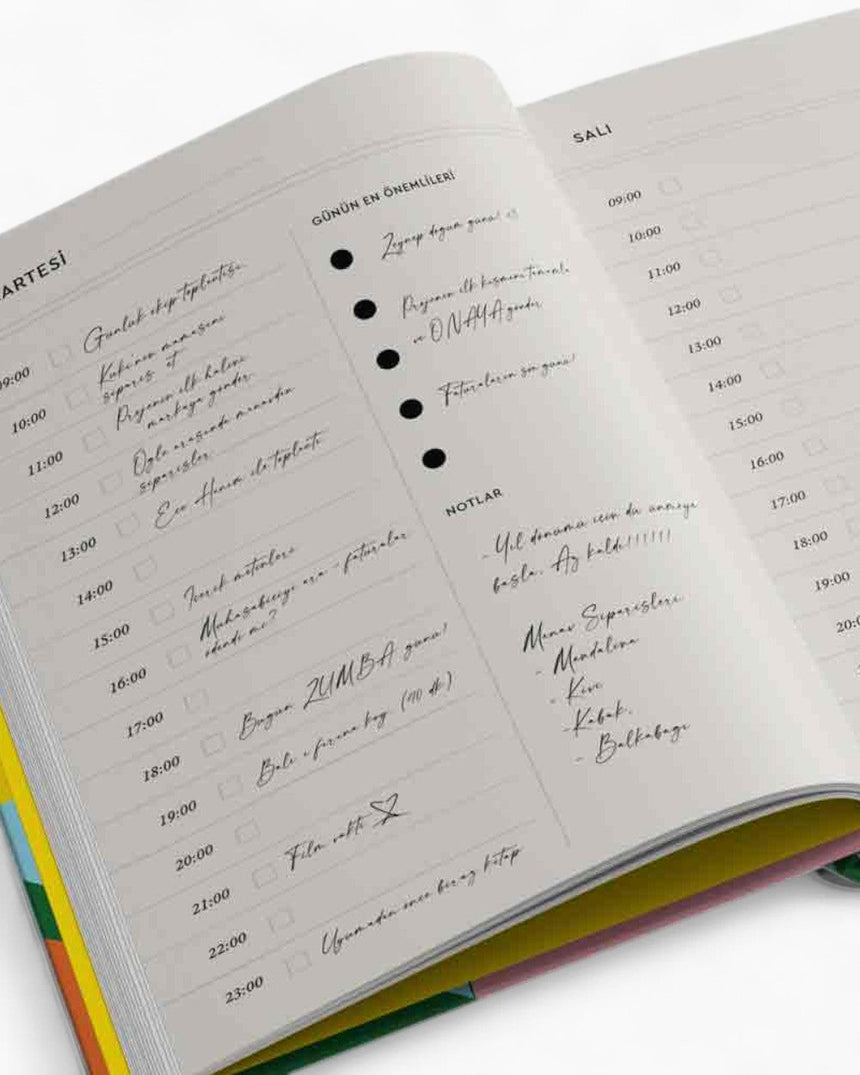 ARTESİ
09:00 Günlük ekip toplantısı
10:00 Kuki'nin mamasını
sipariş et
11:00 Projenin ilk halini
markaya gönder.
12:00 Öğle arasında manavdan
siparişler.
13:00 Ece Hanım ile toplantı
14:00
15:00 İçerik metinleri
16:00 Muhasebeciyi ara - faturalar
ödendi mi?
17:00
18:00 Bugün ZUMBA günü!
19:00 Balı ı fırına koy. (40 dk)
20:00
21:00 Film vakti
22:00
23:00 Uyumadan önce biraz kitap
GÜNÜN EN ÖNEMLİLERİ
Zeynep doğum günü!
Projenin ilk kısmını tamamla
ve ONAYA gönder
Faturaların son günü!
NOTLAR
- Yıl dönümü için düşünmeye
başla. Ay kaldı!!!!!!
Manav Siparişleri
- Mandalina
- Kivi
- Kabak.
- Balkabağı
SALI
09:00
10:00
11:00
12:00
13:00
14:00
15:00
16:00
17:00
18:00
19:00
20:0